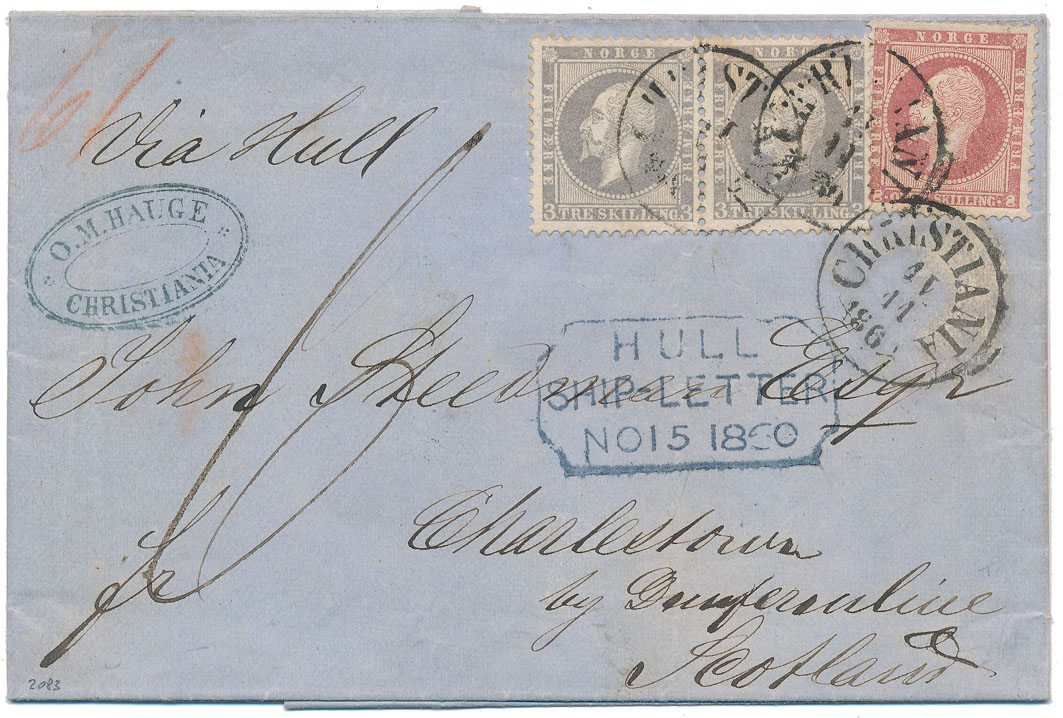 NORGE
FRIMÆRKE
3 TRE SKILLING 3
NORGE
3 TRE SKILLING 3
NORGE
FRIMÆRKE
8 SKILLING 8
Via Hull
O. M. HAUGE
CHRISTIANIA
CHRISTIANIA
11
HULL
SHIP-LETTER
NO 15 1860
John Steedman Esqr
fr
Charlestown
by Dunfermline
Scotland
2083